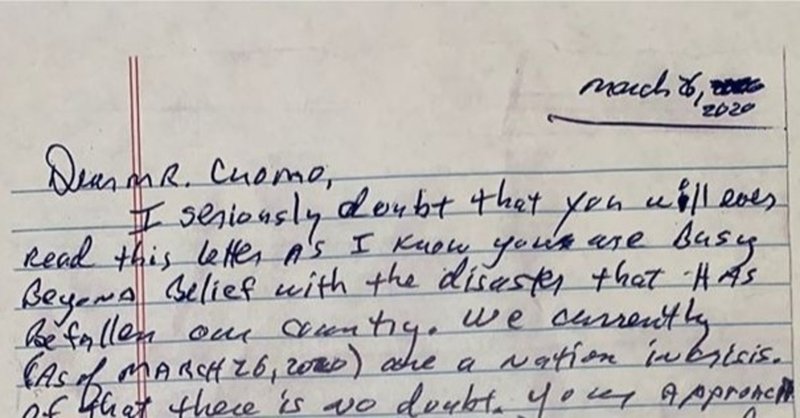 March 26,
2020
Dear MR. Cuomo,
I seriously doubt that you will ever
Read this letter As I know you are Busy
Beyond Belief with the disaster that HAS
Befallen our country. We currently
(As of MARCH 26, 2020) are a nation in crisis.
of that there is no doubt. Your Approach